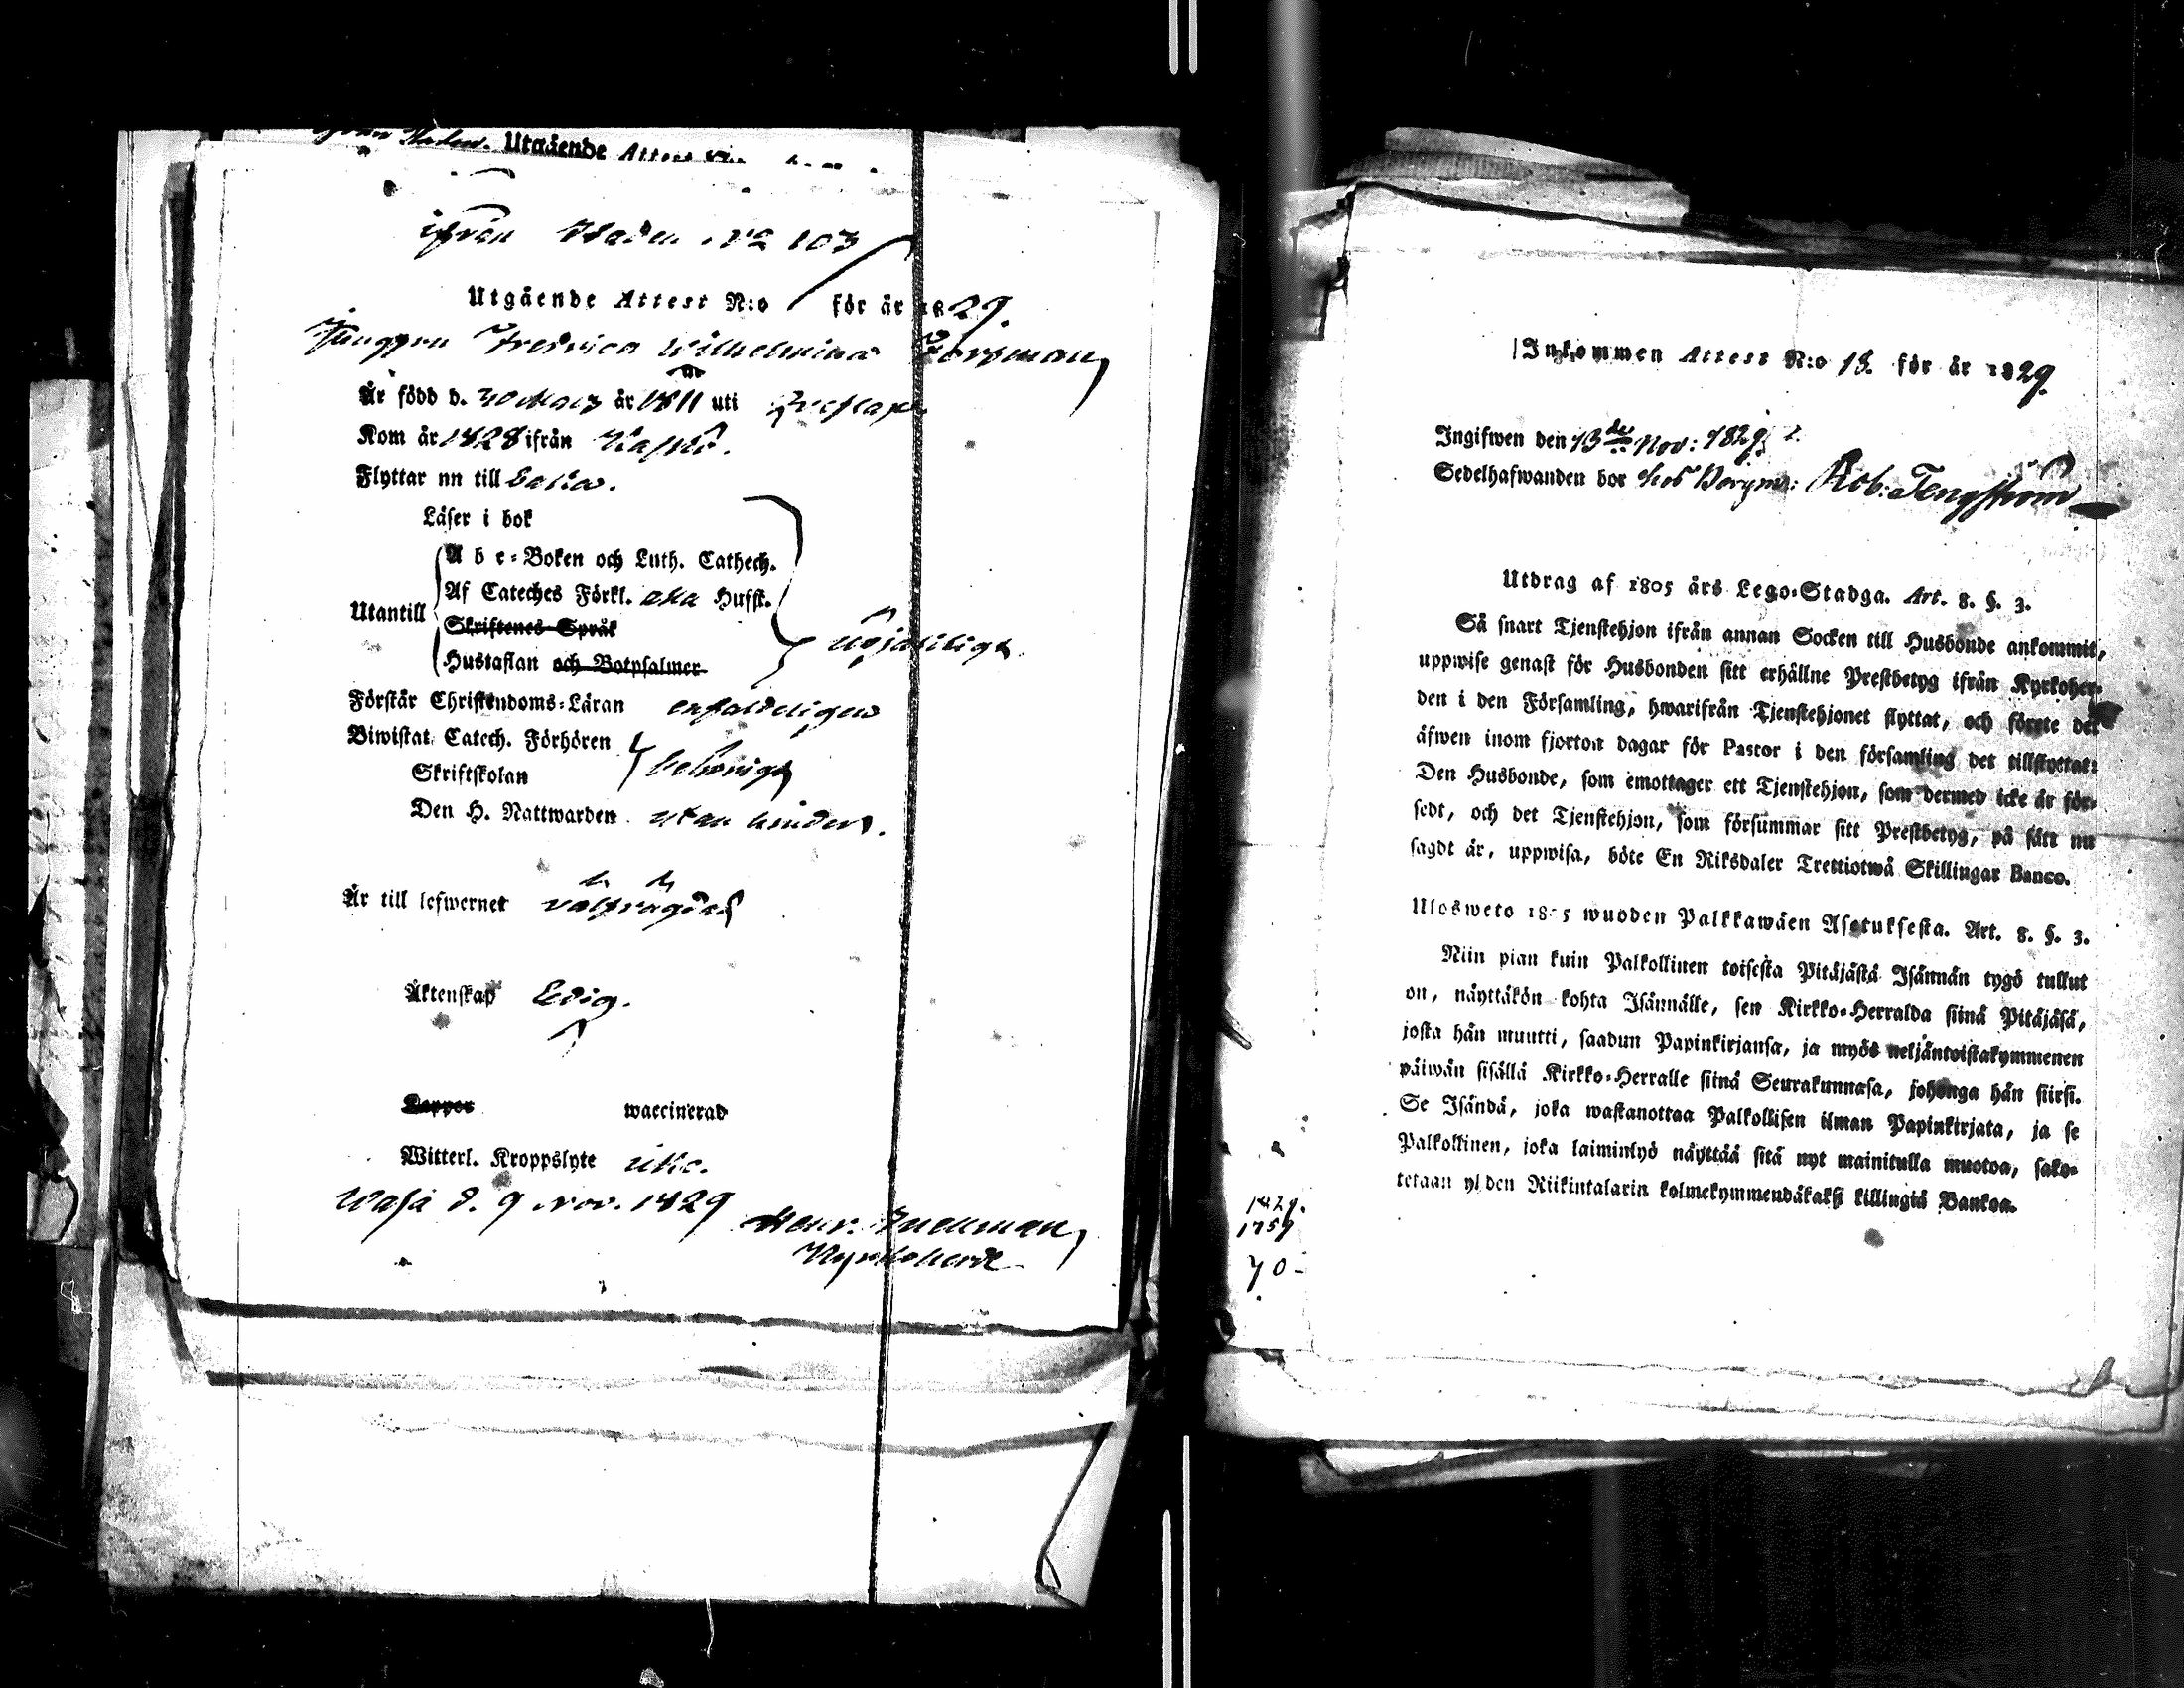 Utgående Attest
ifrån Staden No 103
Utgående Attest N:o för år 1829.
Jungfrun Fredrica Wilhelmina Forsman
Är född d. 30 Mars år 1811 uti
Kom år 1828 ifrån Kaskö.
Flyttar nu till
Läser i bok
Utantill
A b c-Boken och Luth. Cathech.
Af Cateches Förkl. Hufst.
Skriftenes Språk
Hustaflan och Botpsalmer
nöjaktligt
Förstår Christendoms-Läran enfaldeligen
Biwistat Catech. Förhören
Skriftskolan
behörigt
Den H. Nattwarden utan hinder.
Är till lefwernet välfrägdad
Äktenskap Ledig.
Koppor waccinerad
Witterl. Kroppslyte icke.
Wasa d. 9 Nov. 1829
Henr. Backman
Kyrkoherde
Inkommen Attest N:o 13. för år 1829.
Ingifwen den 13de Nov: 1829
Sedelhafwanden bor hos Borgm: Rob: Tengström
Utdrag af 1805 års Lego-Stadga. Art. 8. §. 3.
Så snart Tjenstehjon ifrån annan Socken till Husbonde ankommit,
uppwise genast för Husbonden sitt erhållne Prestbetyg ifrån Kyrkoher-
den i den Församling, hwarifrån Tjenstehjonet flyttat, och förete det
äfwen inom fjorton dagar för Pastor i den församling det tillflyttat:
Den Husbonde, som emottager ett Tjenstehjon, som dermed icke är för-
sedt, och det Tjenstehjon, som försummar sitt Prestbetyg, på sätt nu
sagdt är, uppwisa, böte En Riksdaler Trettiotwå Skillingar Banco.
Ulosweto 1805 wuoden Palkkawäen Asetuksesta. Art. 8. §. 3.
Niin pian kuin Palkollinen toisesta Pitäjästä Isännän tygö tullut
on, näyttäkön kohta Isännälle, sen Kirkko-Herralda siinä Pitäjäsä,
josta hän muutti, saadun Papinkirjansa, ja myös neljäntoistakymmenen
päiwän sisällä Kirkko-Herralle siinä Seurakunnasa, johonga hän siirsi.
Se Isändä, joka wastanottaa Palkollisen ilman Papinkirjata, ja se
Palkollinen, joka laiminlyö näyttää sitä nyt mainitulla muotoa, sako-
tetaan yhden Riikintalarin kolmekymmendäkaksi killingiä Bankoa.
1829.
1759
70-